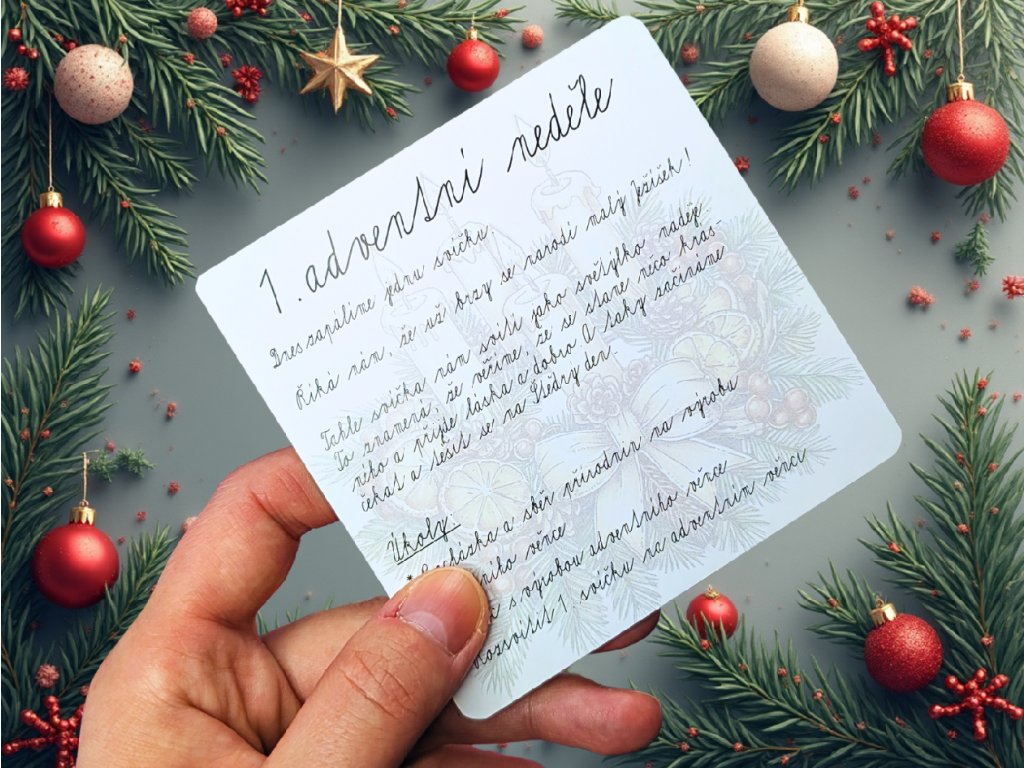 1. adventní neděle
Dnes zapálíme jednu svíčku.
Říká nám, že už brzy se narodí malý Ježíšek!
Tahle svíčka nám svítí jako světýlko naděje.
To znamená, že věříme, že se stane něco krás-
ného a přijde láska a dobro. A taky začínáme
čekat a těšit se na Štědrý den.
Úkoly
* a sběr přírodnin na výrobu
ního věnce
s výrobou adventního věnce
Rozsvítit 1. svíčku na adventnín věnci